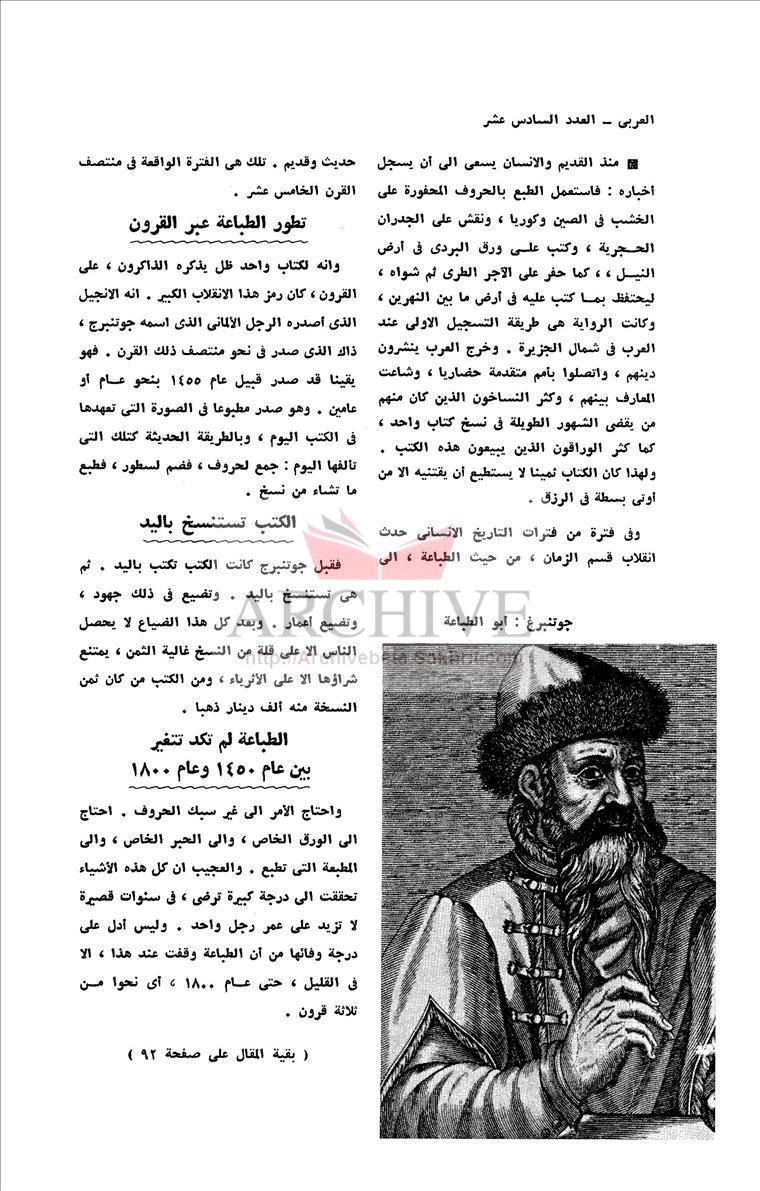 العربى ـ العدد السادس عشر
▩ منذ القديم والانسان يسعى الى أن يسجل
أخباره : فاستعمل الطبع بالحروف المحفورة على
الخشب فى الصين وكوريا ، ونقش على الجدران
الحـجرية ، وكتب علـى ورق البردى فى أرض
النيـل ،، كما حفر على الآجر الطرى ثم شواه ،
ليحتفظ بمـا كتب عليه فى أرض ما بين النهرين ،
وكانت الرواية هى طريقة التسجيل الاولى عند
العرب فى شمال الجزيرة . وخرج العرب ينشرون
دينهم ، واتصلوا بأمم متقدمة حضاريا ، وشاعت
المعارف بينهم ، وكثر النساخون الذين كان منهم
من يقضى الشهور الطويلة فى نسخ كتاب واحد ،
كما كثر الوراقون الذين يبيعون هذه الكتب .
ولهذا كان الكتاب ثمينا لا يستطيع أن يقتنيه الا من
أوتى بسطة فى الرزق .
وفى فترة من فترات التاريخ الانسانى حدث
انقلاب قسم الزمان ، من حيث الطباعة ، الى
جوتنبرغ : أبو الطباعة
حديث وقديم . تلك هى الفترة الواقعة فى منتصف
القرن الخامس عشر .
تطور الطباعة عبر القرون
وانه لكتاب واحد ظل يذكره الذاكرون ، على
القرون ، كان رمز هذا الانقلاب الكبير . انه الانجيل
الذى أصدره الرجل الألمانى الذى اسمه جوتنبرج ،
ذاك الذى صدر فى نحو منتصف ذلك القرن . فهو
يقينا قد صدر قبيل عام ١٤٥٥ بنحو عـام أو
عامين . وهو صدر مطبوعا فى الصورة التى تعهدها
فى الكتب اليوم ، وبالطريقة الحديثة كتلك التى
تالفها اليوم : جمع لحروف ، فضم لسطور ، فطبع
ما تشاء من نسخ .
الكتب تستنسخ باليد
فقبل جوتنبرج كانت الكتب تكتب باليد . ثم
هى تستنسخ باليد . وتضيع فى ذلك جهود ،
وتضيع أعمار . وبعد كل هذا الضياع لا يحصل
الناس الا على قلة من النسخ غالية الثمن ، يمتنع
شراؤها الا على الأثرياء ، ومن الكتب من كان ثمن
النسخة منه ألف دينار ذهبا .
الطباعة لم تكد تتغير
بين عام ١٤٥٠ وعام ١٨٠٠
واحتاج الأمر الى غير سبك الحروف . احتاج
الى الورق الخاص ، والى الحبر الخاص ، والى
المطبعة التى تطبع . والعجيب ان كل هذه الأشياء
تحققت الى درجة كبيرة ترضى ، فى سنوات قصيرة
لا تزيد على عمر رجل واحد . وليس أدل على
درجة وفائها من أن الطباعة وقفت عند هذا ، الا
فى القليل ، حتى عـام ١٨٠٠ ، أى نحوا مـن
ثلاثة قرون .
( بقية المقال على صفحة ٩٢ )
ARCHIVE
http://Archivebeta.Sakhrit.com